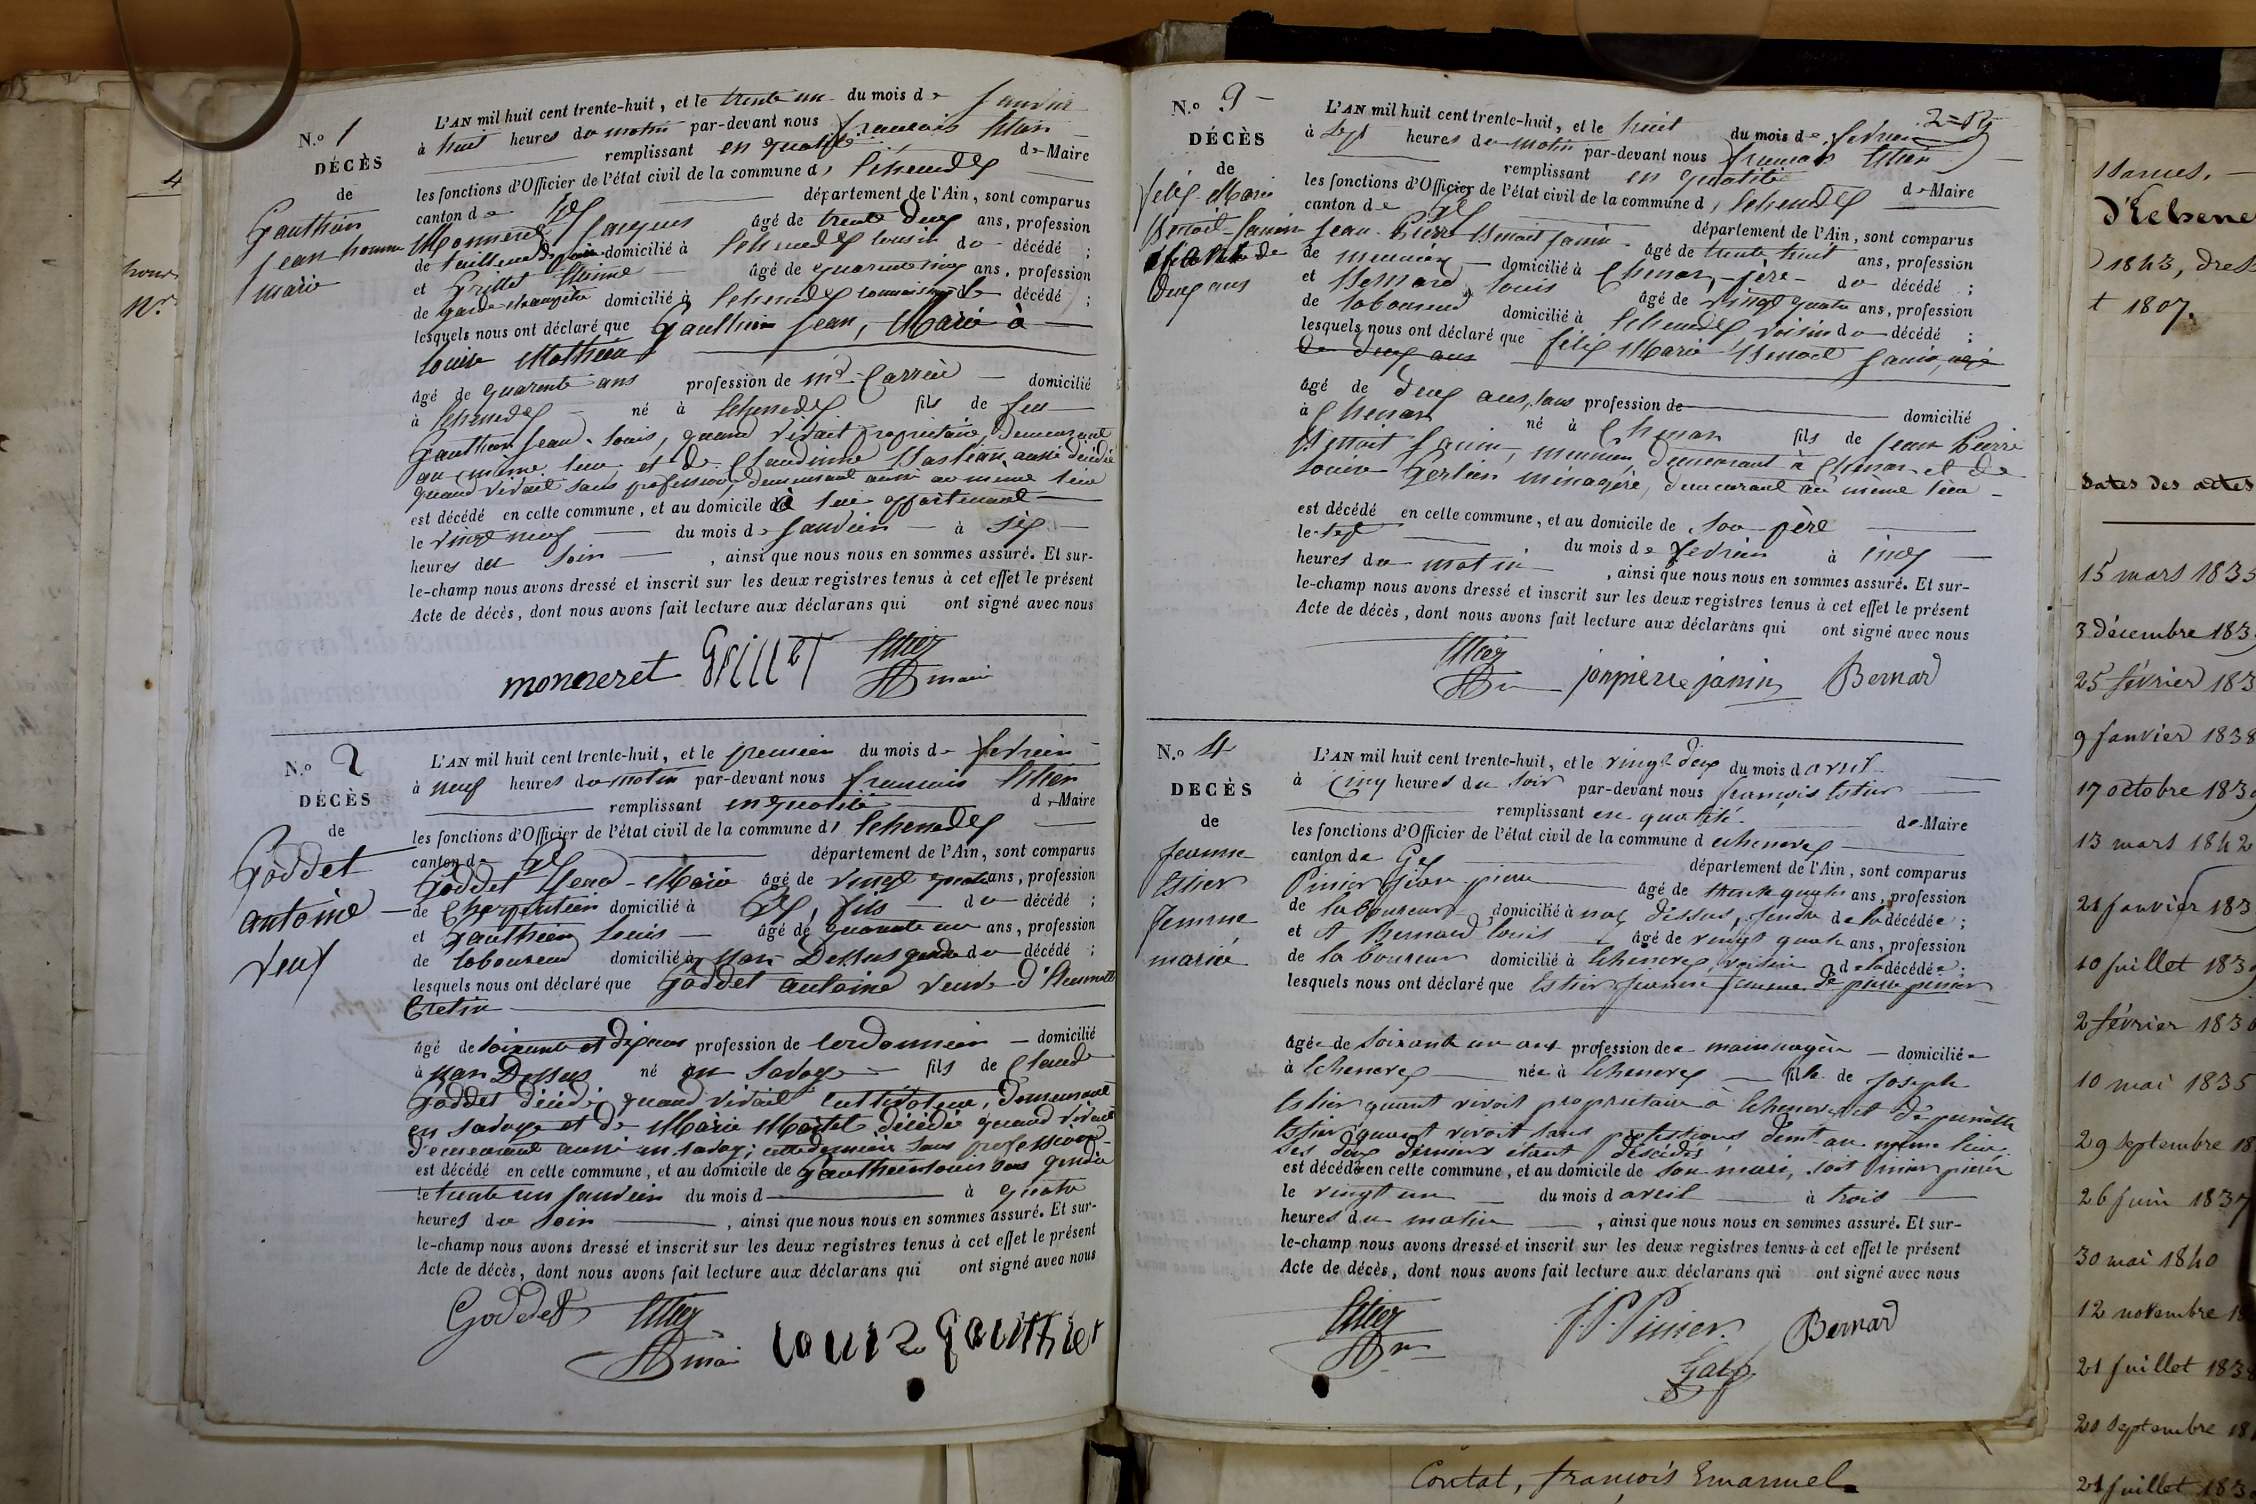 4
N.o 1
DÉCÈS
de
Gauthier
Jean homme
marié
L'AN mil huit cent trente-huit, et le trente un du mois de Janvier
à huit heures du matin par-devant nous François Estier
remplissant en qualité de Maire
les fonctions d'Officier de l'état civil de la commune d'Echenevex
canton de Gex département de l'Ain, sont comparus
Monneret Jacques âgé de trente deux ans, profession
de tailleur domicilié à Echenevex cousin du décédé ;
et Grillet Etienne âgé de quarante cinq ans, profession
de garde champêtre domicilié à Echenevex du décédé ;
lesquels nous ont déclaré que Gauthier Jean, Marié à
Louise Mathieu
âgé de quarante ans profession de md Carrier domicilié
à Echenevex né à Echenevex fils de feu
Gauthier Jean-Louis, quand vivait propriétaire, demeurant
au même lieu et de Claudine Bastian, aussi décédée
quand vivait sans profession, demeurant aussi au même lieu
est décédé en cette commune, et au domicile à lui appartenant
le vingt neuf du mois de Janvier à six
heures du soir, ainsi que nous nous en sommes assuré. Et sur-
le-champ nous avons dressé et inscrit sur les deux registres tenus à cet effet le présent
Acte de décès, dont nous avons fait lecture aux déclarans qui ont signé avec nous
monneret Grillet Estier
maire
N.o 2
DÉCÈS
de
Goddet
antoine
veuf
L'AN mil huit cent trente-huit, et le premier du mois de fevrier
à neuf heures du matin par-devant nous François Estier
remplissant en qualité de Maire
les fonctions d'Officier de l'état civil de la commune d'Echenevex
canton de Gex département de l'Ain, sont comparus
Goddet Jean-Marie âgé de vingt quatre ans, profession
de Charpentier domicilié à Gex, fils du décédé ;
et Gauthier Louis âgé de quarante un ans, profession
de laboureur domicilié à Nax Dessus gendre du décédé ;
lesquels nous ont déclaré que Goddet antoine veuf d'
Cretin
âgé de soixante et dix ans profession de cordonnier domicilié
à Nax Dessus né en Savoye fils de Claude
Goddet décédé quand vivait cultivateur, demeurant
en Savoye et de Marie Martel décédée quand vivait
demeurant aussi en Savoy; cette dernière sans profession
est décédé en cette commune, et au domicile de Gauthier Louis son gendre
le trente un Janvier du mois d à quatre
heures du soir, ainsi que nous nous en sommes assuré. Et sur-
le-champ nous avons dressé et inscrit sur les deux registres tenus à cet effet le présent
Acte de décès, dont nous avons fait lecture aux déclarans qui ont signé avec nous
Goddet Estier louis gauthier
N.o 3
DÉCÈS
de
Félix-Marie
Benoit-Janin
deux ans
L'AN mil huit cent trente-huit, et le huit du mois de fevrier
à sept heures du matin par-devant nous François Estier
remplissant en qualité de Maire
les fonctions d'Officier de l'état civil de la commune d'Echenevex
canton de Gex département de l'Ain, sont comparus
Jean-Pierre Benoit Janin âgé de trente huit ans, profession
de meunier domicilié à Chenaz, père du décédé ;
et Bernard, Louis âgé de vingt quatre ans, profession
de laboureur domicilié à Echenevex, voisin du décédé ;
lesquels nous ont déclaré que félix Marie Benoit Janin, agé
de deux ans
âgé de deux ans, sans profession de domicilié
à Chenaz né à Chenaz fils de Jean Pierre
Benoit Janin, meunier, demeurant à Chenaz et de
Louise Gerlier ménagère, demeurant au même lieu
est décédé en cette commune, et au domicile de son père
le sept du mois de fevrier à cinq
heures du matin, ainsi que nous nous en sommes assuré. Et sur-
le-champ nous avons dressé et inscrit sur les deux registres tenus à cet effet le présent
Acte de décès, dont nous avons fait lecture aux déclarans qui ont signé avec nous
Estier jonpierre janin Bernard
N.o 4
DÉCÈS
de
Jeanne
Estier
femme
mariée
L'AN mil huit cent trente-huit, et le vingt deux du mois d avril
à Cinq heures du soir par-devant nous françois Estier
remplissant en qualité de Maire
les fonctions d'Officier de l'état civil de la commune d echenevex
canton de Gex département de l'Ain, sont comparus
Pinier jean pierre âgé de trente quatre ans, profession
de laboureur domicilié à nax dessus, gendre de la décédée ;
et Bernard louis âgé de vingt quatre ans, profession
de laboureur domicilié à Echenevex, voisin de la décédée ;
lesquels nous ont déclaré que Estier jeanne femme de pierre pinier
âgée de soixante un ans profession de mainnagère domiciliée
à Echenevex née à Echenevex fille de Joseph
Estier quant vivoit propriétaire à Echenevex et de pernette
Estier quant vivoit sans profession demt. au même lieu
ses deux derniers étant décédés
est décédée en cette commune, et au domicile de son mari, soit pinier pierre
le vingt un du mois d avril à trois
heures du matin, ainsi que nous nous en sommes assuré. Et sur-
le-champ nous avons dressé et inscrit sur les deux registres tenus à cet effet le présent
Acte de décès, dont nous avons fait lecture aux déclarans qui ont signé avec nous
Estier J.P. Pinier. Bernard
d'Echene
1843, dres
t 1807.
Dates des actes
15 mars 1835
3 décembre 183
25 février 183
9 Janvier 1838
17 octobre 1839
13 mars 1842
21 Janvier 183
10 Juillet 183
2 février 183
10 mai 1835
29 septembre 18
26 Juin 1837
30 mai 1840
12 novembre 18
21 Juillet 1838
20 septembre 18
21 Juillet 183
Contat, françois Emanuel.